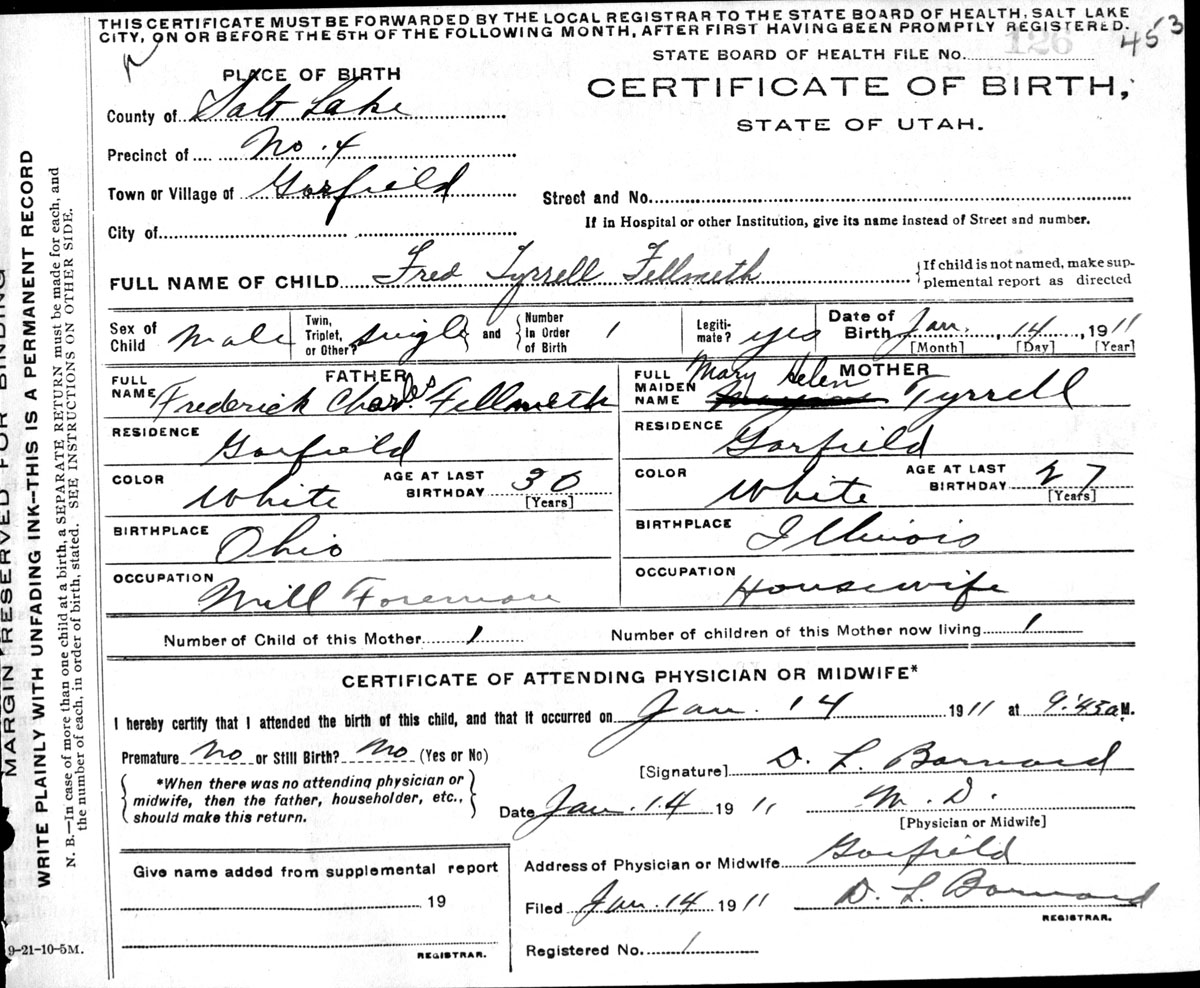 THIS CERTIFICATE MUST BE FORWARDED BY THE LOCAL REGISTRAR TO THE STATE BOARD OF HEALTH, SALT LAKE
CITY, ON OR BEFORE THE 5TH OF THE FOLLOWING MONTH, AFTER FIRST HAVING BEEN PROMPTLY REGISTERED.
STATE BOARD OF HEALTH FILE No. 126 453
PLACE OF BIRTH
CERTIFICATE OF BIRTH,
STATE OF UTAH.
County of Salt Lake
Precinct of No. 4
Town or Village of Garfield
Street and No.
City of
If in Hospital or other Institution, give its name instead of Street and number.
FULL NAME OF CHILD Fred Tyrrell Fellmeth
If child is not named, make sup-
plemental report as directed
Sex of Child Male
Twin, Triplet, or Other? Single
and Number In Order of Birth 1
Legiti-mate? yes
Date of Birth Jan. 14, 1911
[Month] [Day] [Year]
FATHER
FULL NAME Frederick Charles Fellmeth
RESIDENCE Garfield
COLOR White AGE AT LAST BIRTHDAY 30 [Years]
BIRTHPLACE Ohio
OCCUPATION Mill Foreman
MOTHER
FULL MAIDEN NAME Mary Helen Tyrrell
RESIDENCE Garfield
COLOR White AGE AT LAST BIRTHDAY 27 [Years]
BIRTHPLACE Illinois
OCCUPATION Housewife
Number of Child of this Mother 1 Number of children of this Mother now living 1
CERTIFICATE OF ATTENDING PHYSICIAN OR MIDWIFE*
I hereby certify that I attended the birth of this child, and that it occurred on Jan. 14 1911 at 9:43 a M.
Premature No or Still Birth? No (Yes or No)
*When there was no attending physician or
midwife, then the father, householder, etc.,
should make this return.
[Signature] D. L. Barnard
Date Jan. 14 1911 M. D.
[Physician or Midwife]
Address of Physician or Midwife Garfield
Filed Jan. 14 1911 D. L. Barnard
REGISTRAR.
Registered No. 1
Give name added from supplemental report
19
REGISTRAR.
9-21-10-5M.
MARGIN RESERVED FOR BINDING
WRITE PLAINLY WITH UNFADING INK—THIS IS A PERMANENT RECORD
N. B.—In case of more than one child at a birth, a SEPARATE RETURN must be made for each, and
the number of each, in order of birth, stated. SEE INSTRUCTIONS ON OTHER SIDE.